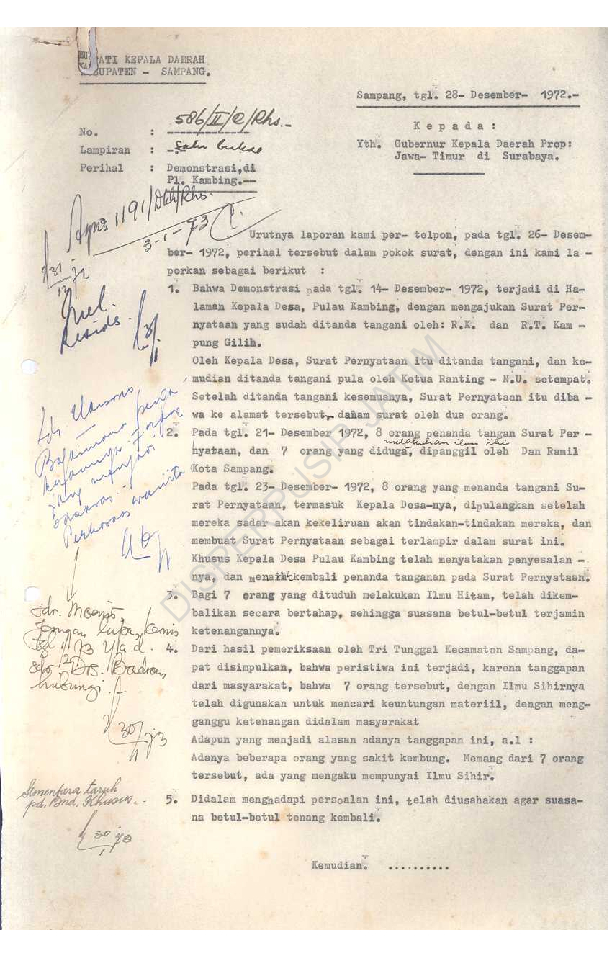 PATI KEPALA DAERAH
UPATEN - SAMPANG.
Sampang, tgl. 28- Desember- 1972.-
No. : 586/II/C/Rhs.-
Lampiran : - Satu berkas
Perihal : Demonstrasi,di
Pl. Kambing.--
K e p a d a :
Yth. Gubernur Kepala Daerah Prop:
Jawa- Timur di Surabaya.
Agno 1191/ /Rhs.
3-1-73
Urutnya laporan kami per- telpon, pada tgl. 26- Desem-
ber- 1972, perihal tersebut dalam pokok surat, dengan ini kami la -
porkan sebagai berikut :
1. Bahwa Demonstrasi pada tgl. 14- Desember- 1972, terjadi di Ha-
laman Kepala Desa, Pulau Kambing, dengan mengajukan Surat Per-
nyataan yang sudah ditanda tangani oleh: R.K. dan R.T. Kam -
pung Gilih.
Oleh Kepala Desa, Surat Pernyataan itu ditanda tangani, dan ke-
mudian ditanda tangani pula oleh Ketua Ranting - N.U. setempat.
Setelah ditanda tangani kesemuanya, Surat Pernyataan itu diba -
wa ke alamat tersebut, dalam surat oleh dua orang.
2. Pada tgl. 21- Desember 1972, 8 orang penanda tangan Surat Per -
nyataan, dan 7 orang yang diduga, dipanggil oleh Dan Ramil
melakukan ilmu sihir
Kota Sampang.
Pada tgl. 23- Desember- 1972, 8 orang yang menanda tangani Su-
rat Pernyataan, termasuk Kepala Desa-nya, dipulangkan setelah
mereka sadar akan kekeliruan akan tindakan-tindakan mereka, dan
membuat Surat Pernyataan sebagai terlampir dalam surat ini.
Khusus Kepala Desa Pulau Kambing telah menyatakan penyesalan -
nya, dan menarik kembali penanda tanganan pada Surat Pernyataan.
3. Bagi 7 orang yang dituduh melakukan Ilmu Hitam, telah dikem-
balikan secara bertahap, sehingga suasana betul-betul terjamin
ketenangannya.
4. Dari hasil pemeriksaan oleh Tri Tunggal Kecamatan Sampang, da-
pat disimpulkan, bahwa peristiwa ini terjadi, karena tanggapan
dari masyarakat, bahwa 7 orang tersebut, dengan Ilmu Sihirnya
telah digunakan untuk mencari keuntungan materiil, dengan meng-
ganggu ketenangan didalam masyarakat
Adapun yang menjadi alasan adanya tanggapan ini, a.l :
Adanya beberapa orang yang sakit kembung. Memang dari 7 orang
tersebut, ada yang mengaku mempunyai Ilmu Sihir.
5. Didalam menghadapi persoalan ini, telah diusahakan agar suasa-
na betul-betul tenang kembali.
Kemudian. ..........
Sementara taruh
DISPERPUSIP JATIM